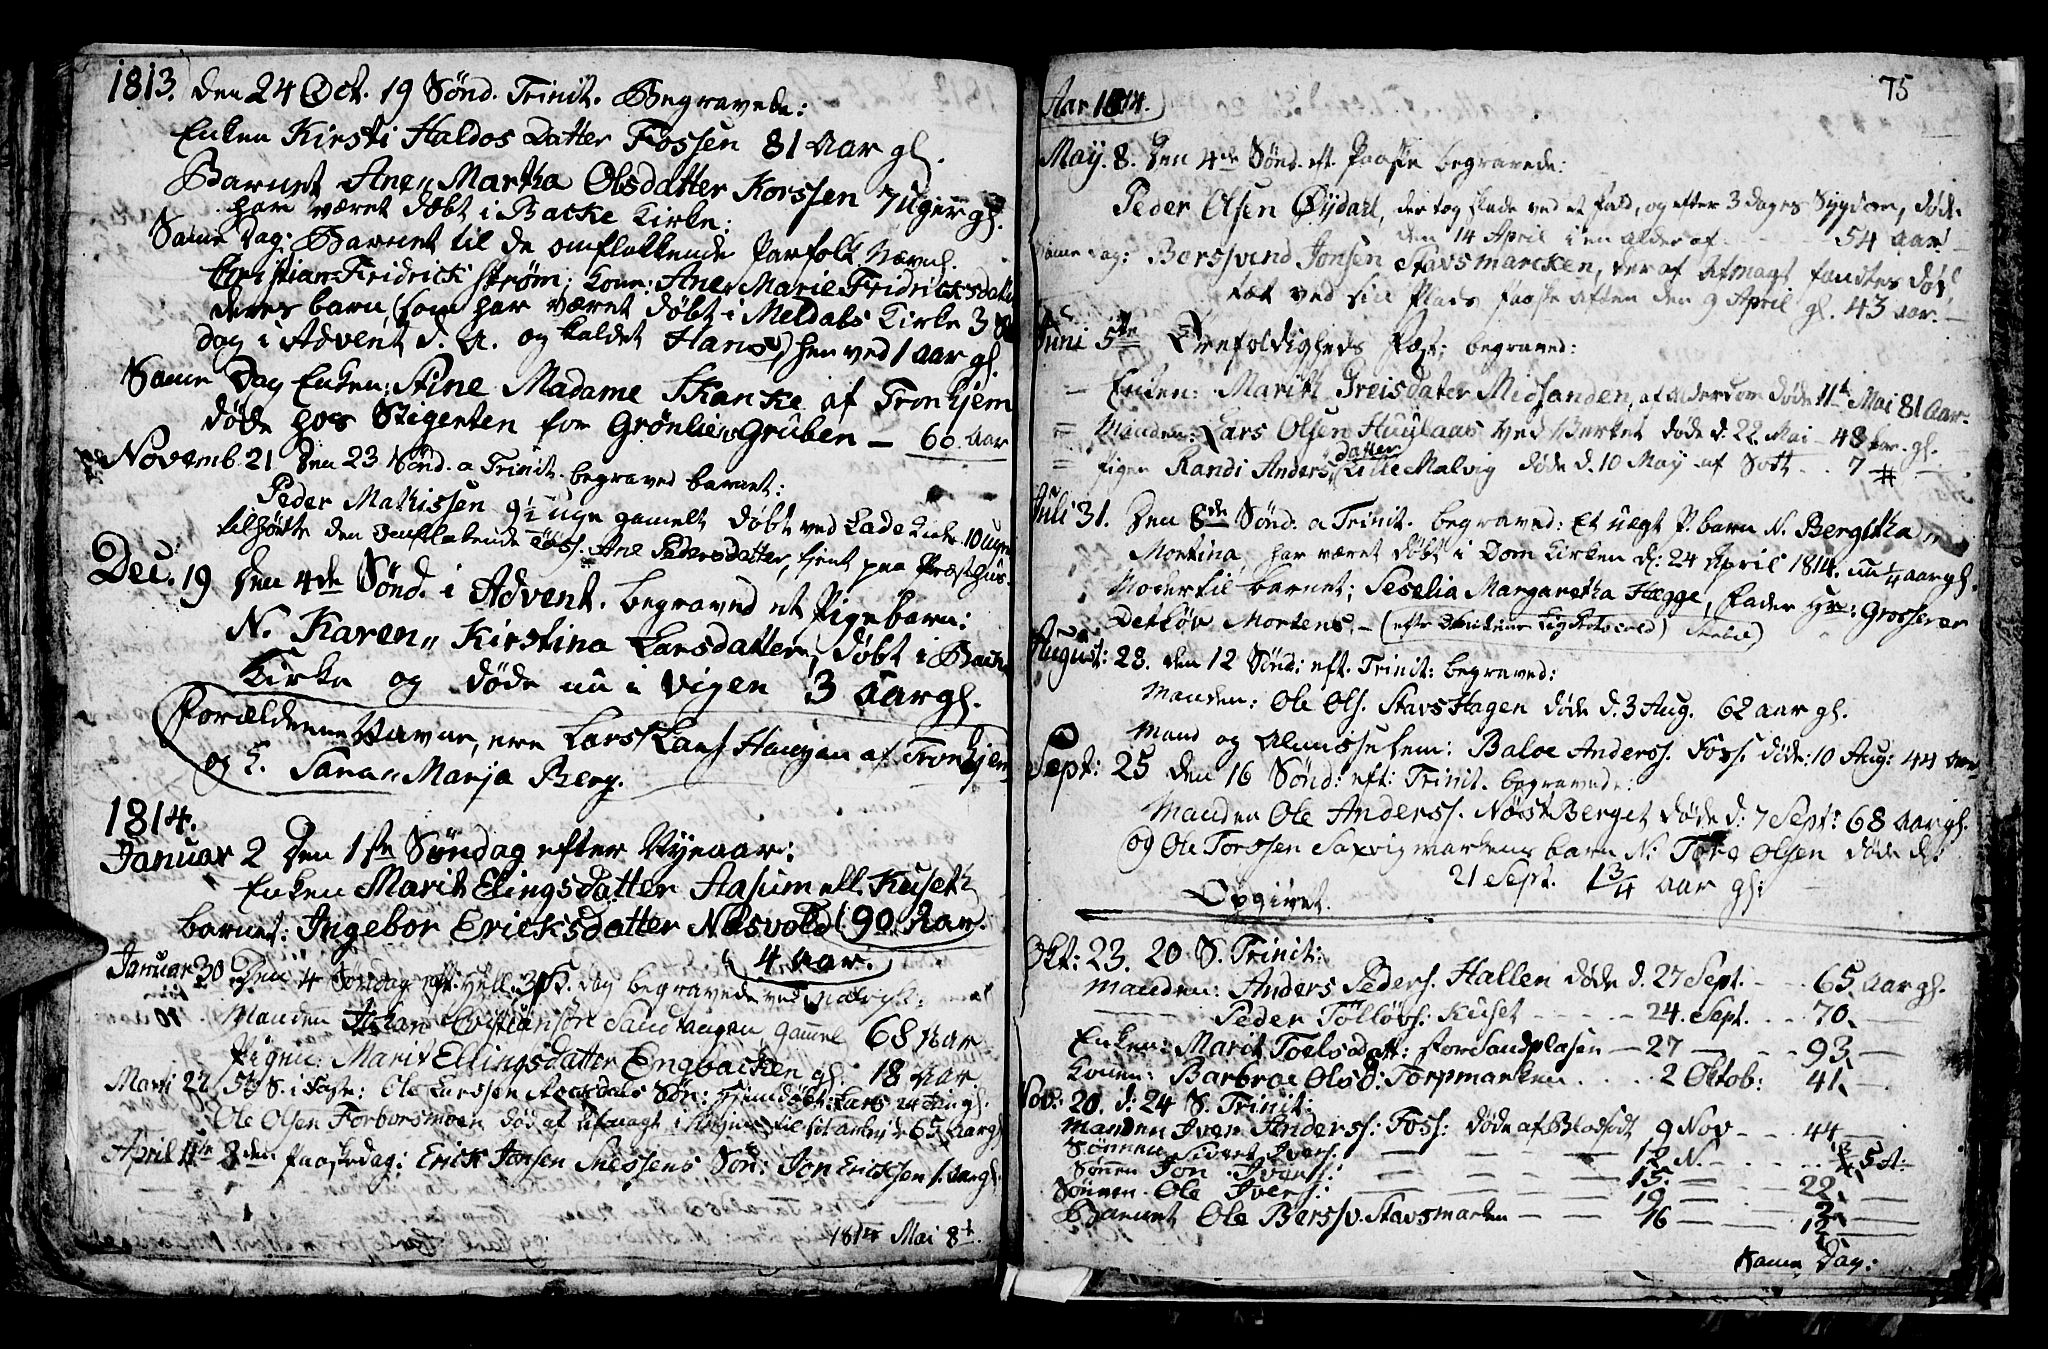 1813. den 24 Oct. 19 Sønd. Trinit. Begravede:
Enken Kirsti Haldos Datter Fossen 81 Aar gl.
Barnet Ane,, Martha Olsdatter Korssen 7 Uger gl.
har været døbt i Backe Kirke:
Same Dag: Barnet til de omflakkende Parfolk Navnl.
Christian Fridrick Strøm; Kone: Ane Marie Fridricksdatt
deres barn (som har været døbt i Meldals Kirke 3 S
dag i Advent d. A. og kaldet Hans) hen ved 1 aar gl.
Same Dag Enken: Stine Madame Skancke af Tronhjem
døde hos Stegerten for Grønlie Gruben — 60 Aar
Novemb. 21 Den 23 Sønd. a Trinit. begraved barnet:
Peder Mathissen 9½ uge gamelt døbt ved Lade Kirke
tilhørte den omflakende Ane Pedersdatter, tient paa
Dec. 19 Den 4de Sønd. i Advent. begraved et Pigebarn:
N. Karen,, Kirstina Larsdatter, døbt i Bache
Kirke og døde nu i Vigen 3 Aar gl.
Forældrene Navne, ere Lars Lars. Haugan af Tronhjem
og E. Sara,, Marja Berg.
1814.
Januar 2 Den 1ste Søndag efter Nyeaar:
Enken Marit Elingsdatter Aasum ell. Kuseth
barnet: Ingebor Ericksdatter Næsvold (90 Aar.
4 Aar.
Januar 30 Den 4 Søndag eft. Hell. 3 K. Dag begravede ved Malvigh:
Manden Johan Cristianson Sandhaugen gamel 68 Aar
Pigen: Marit Ellingsdatter Engbacken gl. 18 Aar.
Marti 27 5te S. i Faste: Ole Larssen Søn: hjemdøbt: Lars gl.
Ole Olsen Forborsmoen død af Afmagt i til sit arbejde 65 Aar gl
April 11te 2den Paaskedag: Erick Jonsen Snessens Søn: Jon Ericksen 1. Aar gl.
1814 Mai 8d.
75
Aar 1814.
May. 8. Den 4de Sønd. eft. Paaske begravede:
Peder Olsen Øydahl, der tog skade ved et Fald, og efter 3 dages Sygdom, døde
den 14 April i en alder af - - - 54 aar
Same Dag: Borssvend Jonsen Stavsmarcken, der af Afmagt fandtes død
tæt ved sin Plads Paaske aften den 9 April gl. 43 aar. —
Juni 5te Trefoldigheds Fest; begraved:
— Enken: Marith Greisdater Midsanden, af Alderdom døde 11te Mai 81 Aar.
= Manden: Lars Olsen Huulaas ved Værket døde d. 22 Mai — 48 Aar. gl.
= Pigen Randi Anders,, datter Lille Malvig døde d. 10 May af Sott - - 7 #
Juli 31. Den 8de Sønd. a Trinit. begraved: Et uegt P. barn N. Bergitha
Mortina, har været døbt i Dom Kirken d: 24 April 1814. nu ¼ aar gl.
Moder til barnet; Seselia Margaretha Hegge, fader Hr: Grosserer
Detløv Mortens. — (efter
August: 28. den 12 Sønd: eft. Trinit: begraved:
Manden: Ole Ols. Stavs Hagen døde d. 3 Aug. 62 aar gl.
Mand og Almisselem: Baloe Anderss. Foss. døde: 10 Aug: 44 Aar
Sept: 25 den 16 Sønd: eft: Trinit. begravede:
Manden Ole Anderss. Nøist Berget døde d: 7 Sept: 68 aar gl.
og Ole Torssen Saxvigmarkens barn N: Tore Olsen døde d:
21 Sept. 1¾ Aar gl:
Opgivet.
Okt: 23. 20 S. Trinit:
Manden: Anders Peders. Hallen døde d. 27 Sept. — - - 65 Aar gl.
— — Peder Tølløvs: Kuset - - - - 24. Sept. - - - 70. —
Enken: Marit Toelsdatt: Forsandplasen — 27 — - - 93 —
Konen: Barbroe Olsd: Torpmarken - - - - 2 Octob: 41 —
Nov: 20. d: 24 S. Trinit:
Manden Iver Anderss: Foss: døde af Blodsodt 9 Nov — - - 44 —
Sønnen Sivert Ivers. — — — 12 N. — - - 5 A:
Sønnen Jon Ivers: — — — 15. — — 22 —
Sønnen Ole Ivers: — — — 19 — — 2 —
Barnet Ole Berssv. Stavsmarken — — 16 — — 12 —
Same Dag: